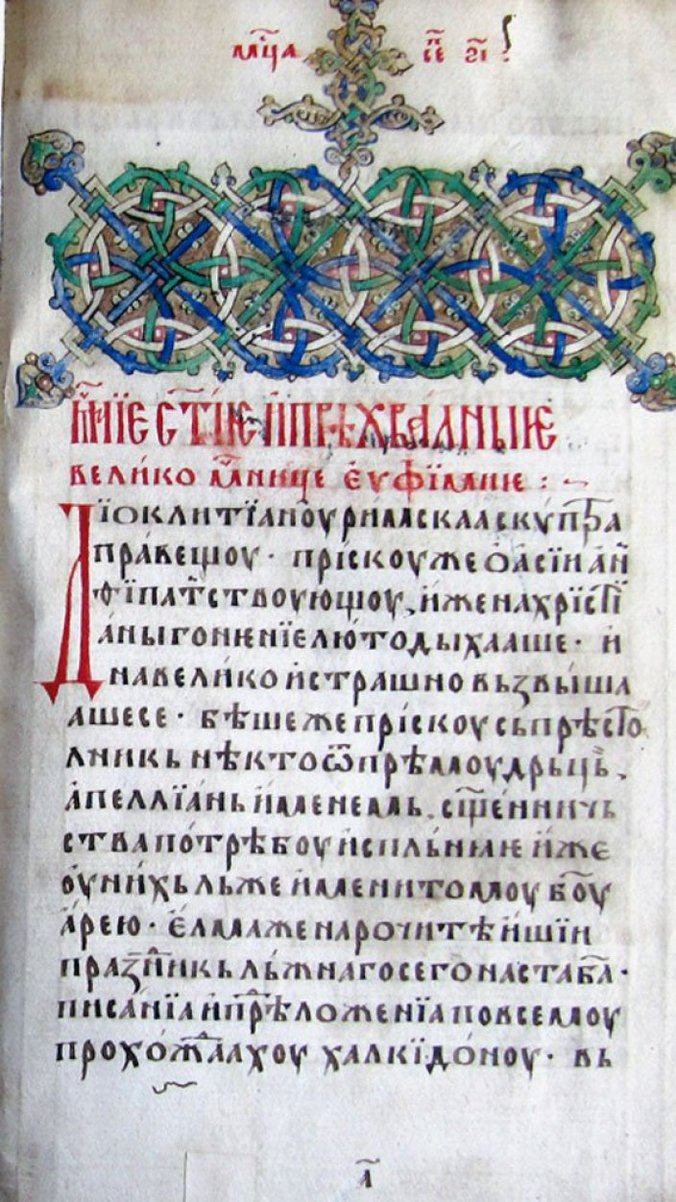 мⷭ҇ца сеⷫ҇ ѕ҃і :
М҃чнїе с҃тїе и прѣхвалныѥ
велико м҃чнице еѵфїмиѥ :
Дїоклитїаноу римаска скѵптра
правещоу · прїскоу же ѳасїи ан
ѳїпатⷭ҇ствоующоу, иже на хрїстї
аны гонѥнїе люто дыхааше · и
на велико и страшно вьзвыша
аше се · бѣше же прїскоу сьпрѣсто
лникь нѣкто ѿ прѣмоудрьць,
апеллїань именемь, сщ҃енничь
ства потрѣбоу испльнꙗе иже
оу нихь льже именитомоу бо҃у
арею · елма же нарочитѣишїи
празⷣникь льжнаго сего настава ·
писанїа и прѣложенїа по всемоу
прохожⷣаахоу халкїдоноу · вь
а҃